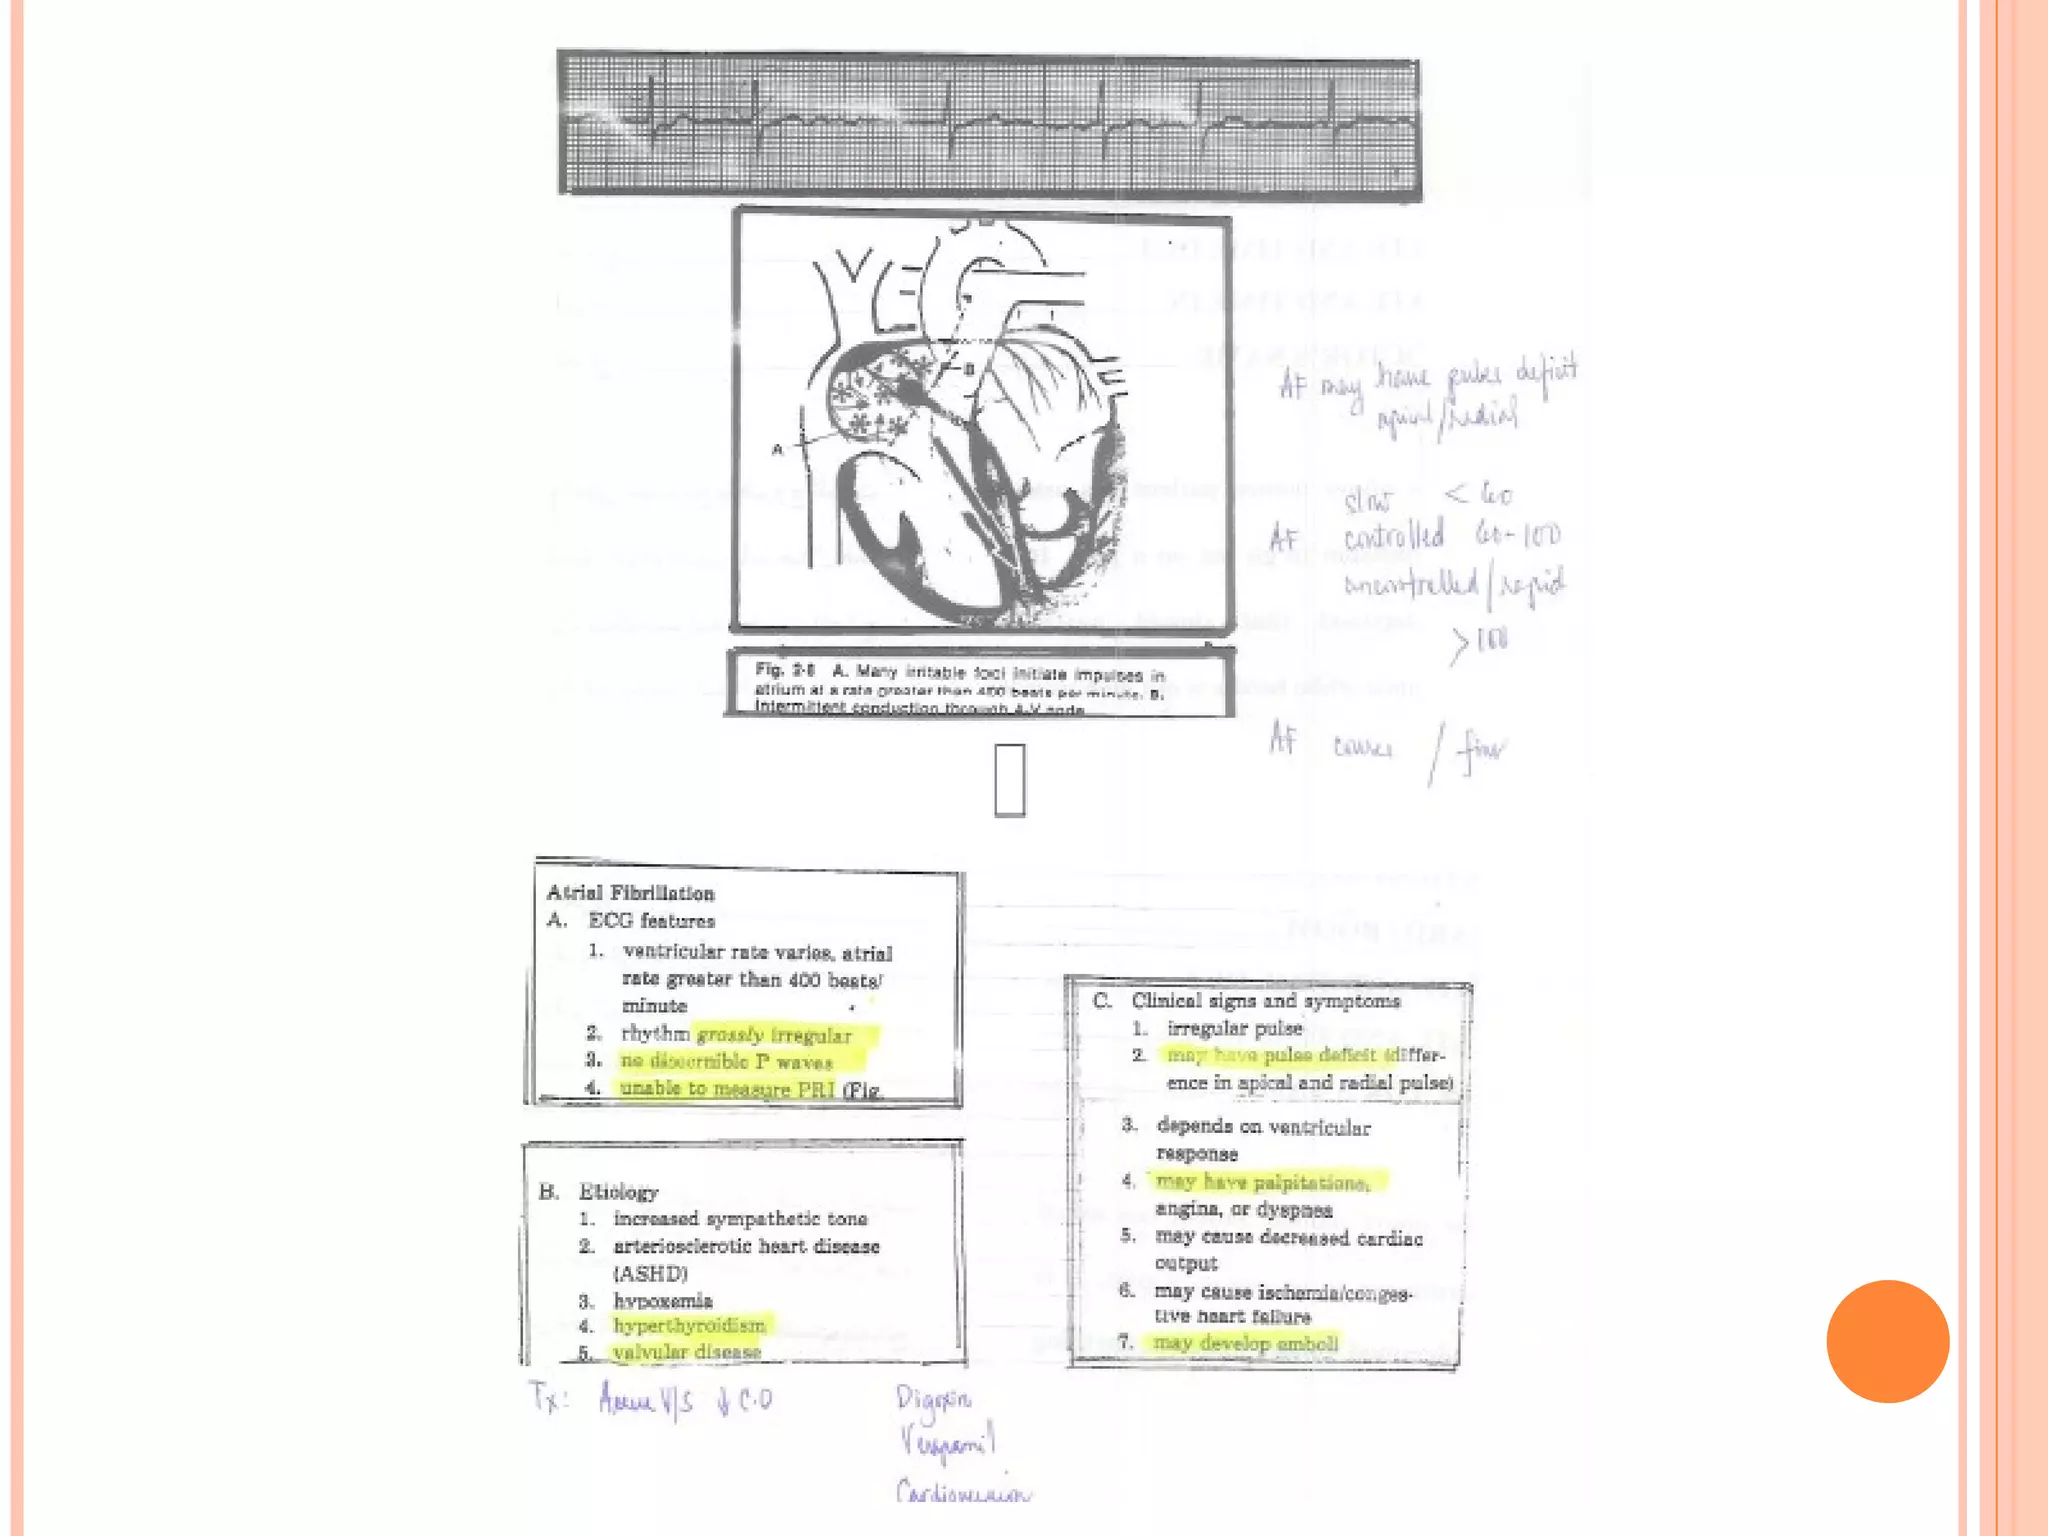 A
B
Fig. 2-8 A. Many irritable foci initiate impulses in
atrium at a rate greater than 400 beats per minute. B.
Intermittent conduction through A-V node
AF may have pulse deficit
apical/radial
slow < 60
AF controlled 60-100
uncontrolled/rapid
> 100
AF coarse / fine
Atrial Fibrillation
A. ECG features
1. ventricular rate varies, atrial
rate greater than 400 beats/
minute
2. rhythm grossly irregular
3. no discernible P waves
4. unable to measure PRI (Fig.
B. Etiology
1. increased sympathetic tone
2. arteriosclerotic heart disease
(ASHD)
3. hypoxemia
4. hyperthyroidism
5. valvular disease
C. Clinical signs and symptoms
1. irregular pulse
2. may have pulse deficit (differ-
ence in apical and radial pulse)
3. depends on ventricular
response
4. may have palpitations,
angina, or dyspnea
5. may cause decreased cardiac
output
6. may cause ischemia/conges-
tive heart failure
7. may develop emboli
Tx: V/S ↓ C.O
Digoxin
Verapamil
Cardioversion